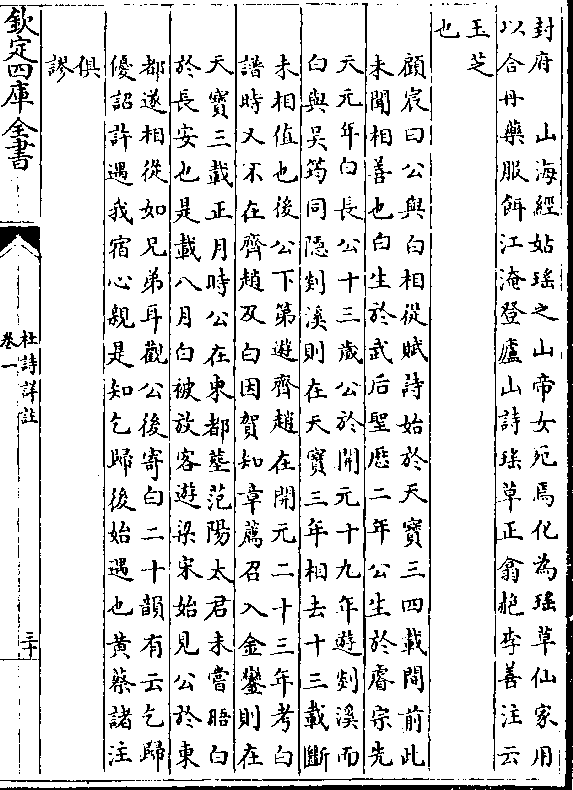 封府　山海經姑瑤之山帝女死焉化為瑤草仙家用
以合丹藥服餌江淹登廬山詩瑤草正翕赩李善注云
玉芝
也
顧宸曰公與白相從賦詩始於天寶三四載間前此
未聞相善也白生於武后聖厯二年公生於睿宗先
天元年白長公十三歲公於開元十九年遊剡溪而
白與吴筠同隱剡溪則在天寶三年相去十三載斷
未相值也後公下第遊齊趙在開元二十三年考白
譜時又不在齊趙及白因賀知章薦召入金鑾則在
天寶三載正月時公在東都塟范陽太君未嘗晤白
於長安也是載八月白被放客遊梁宋始見公於東
都遂相從如兄弟耳觀公後寄白二十韻有云乞歸
優詔許遇我宿心親是知乞歸後始遇也黄蔡諸注
俱
謬
欽定四庫全書
杜詩詳註
卷一
三十